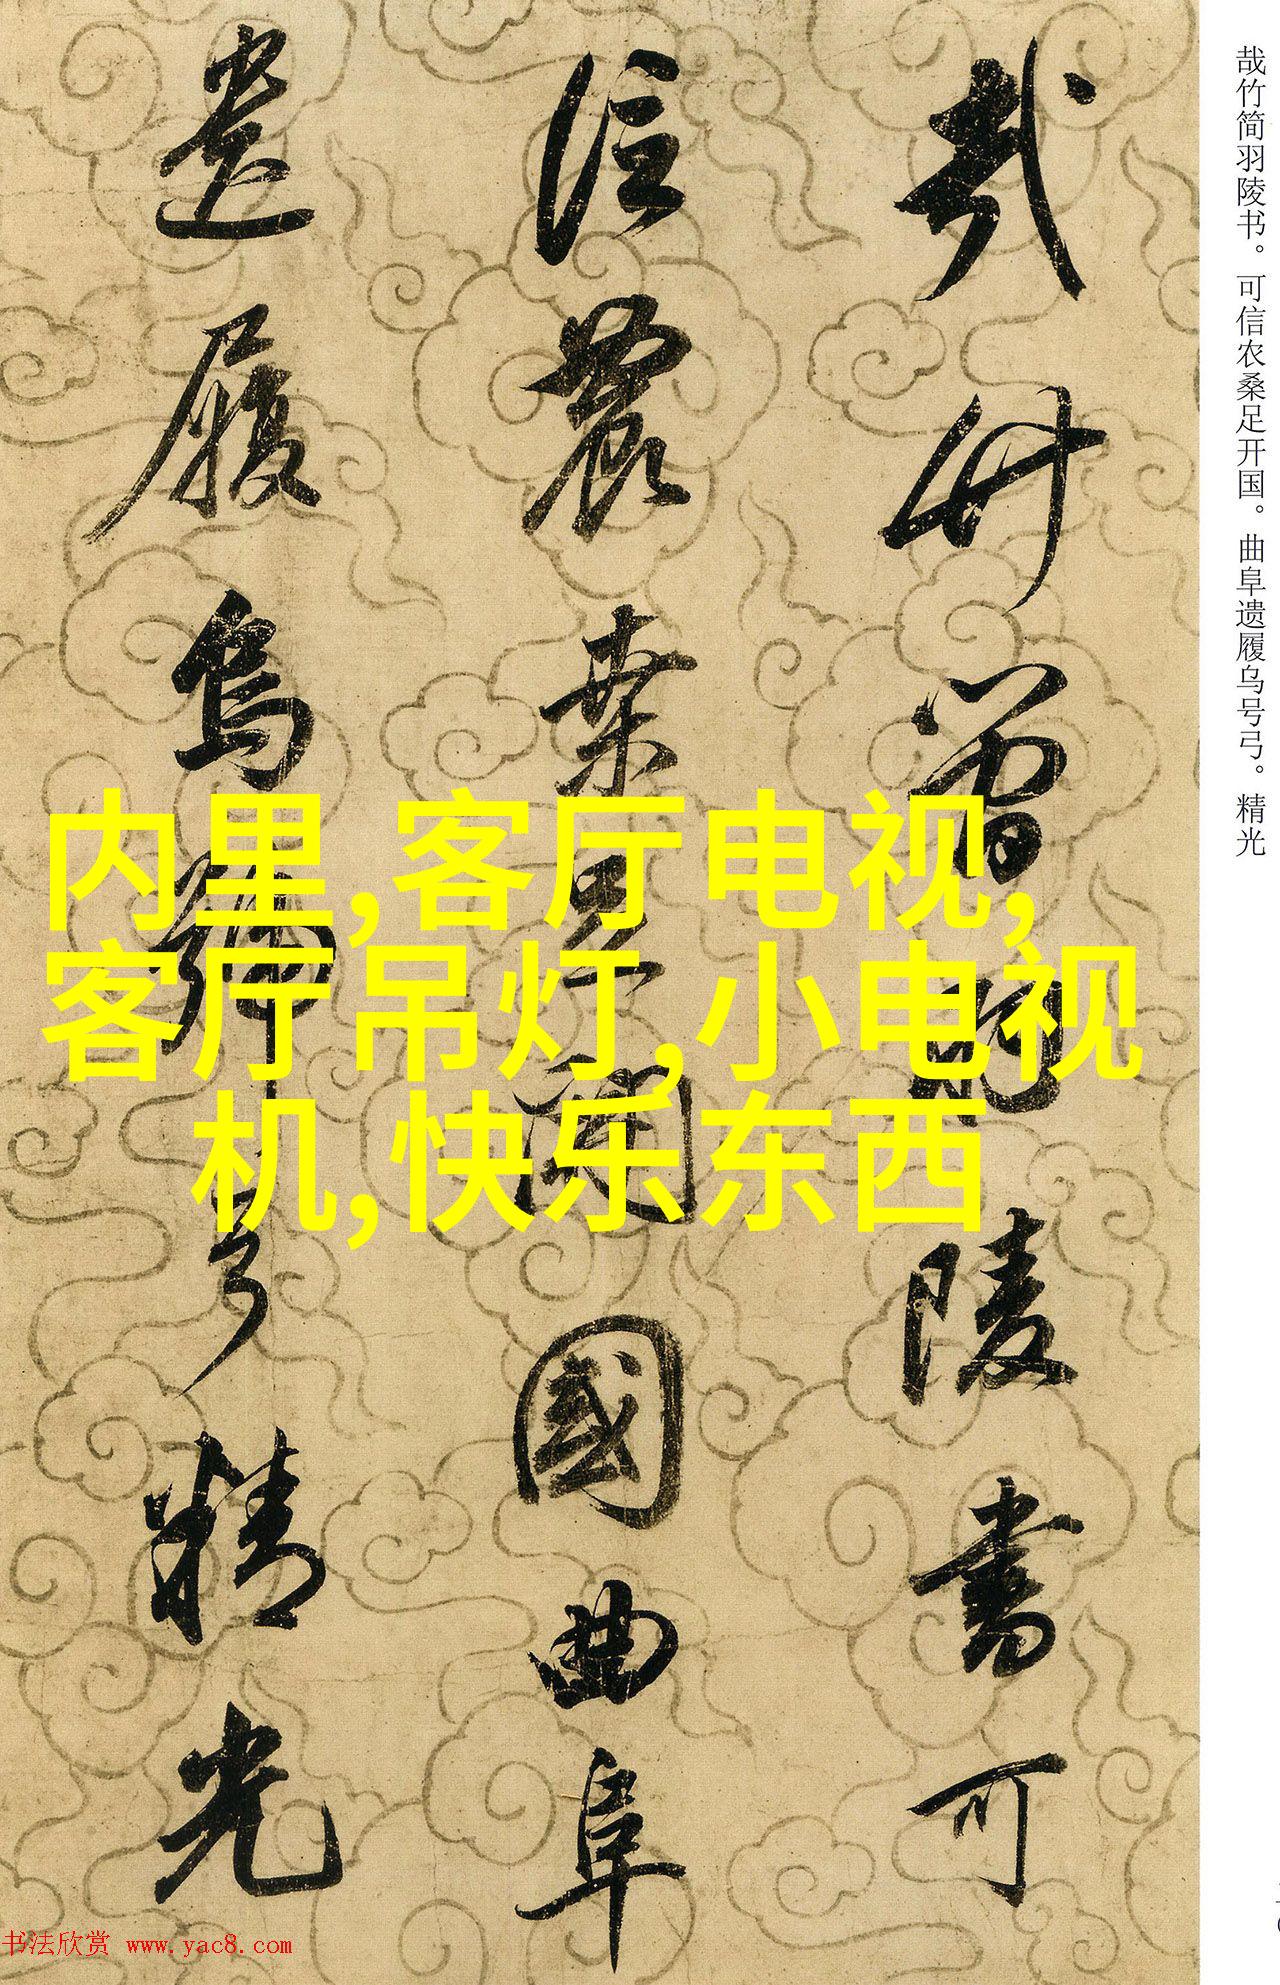 哉竹简羽陵书。可信农桑足开国。曲阜遗履乌号弓。精光
哉竹簡羽陵書可
信農桑足開國曲阜
遺履烏號弓精光
内里,客厅电视,
客厅吊灯,小电视
机,快乐东西
书法欣赏 www.yac8.com